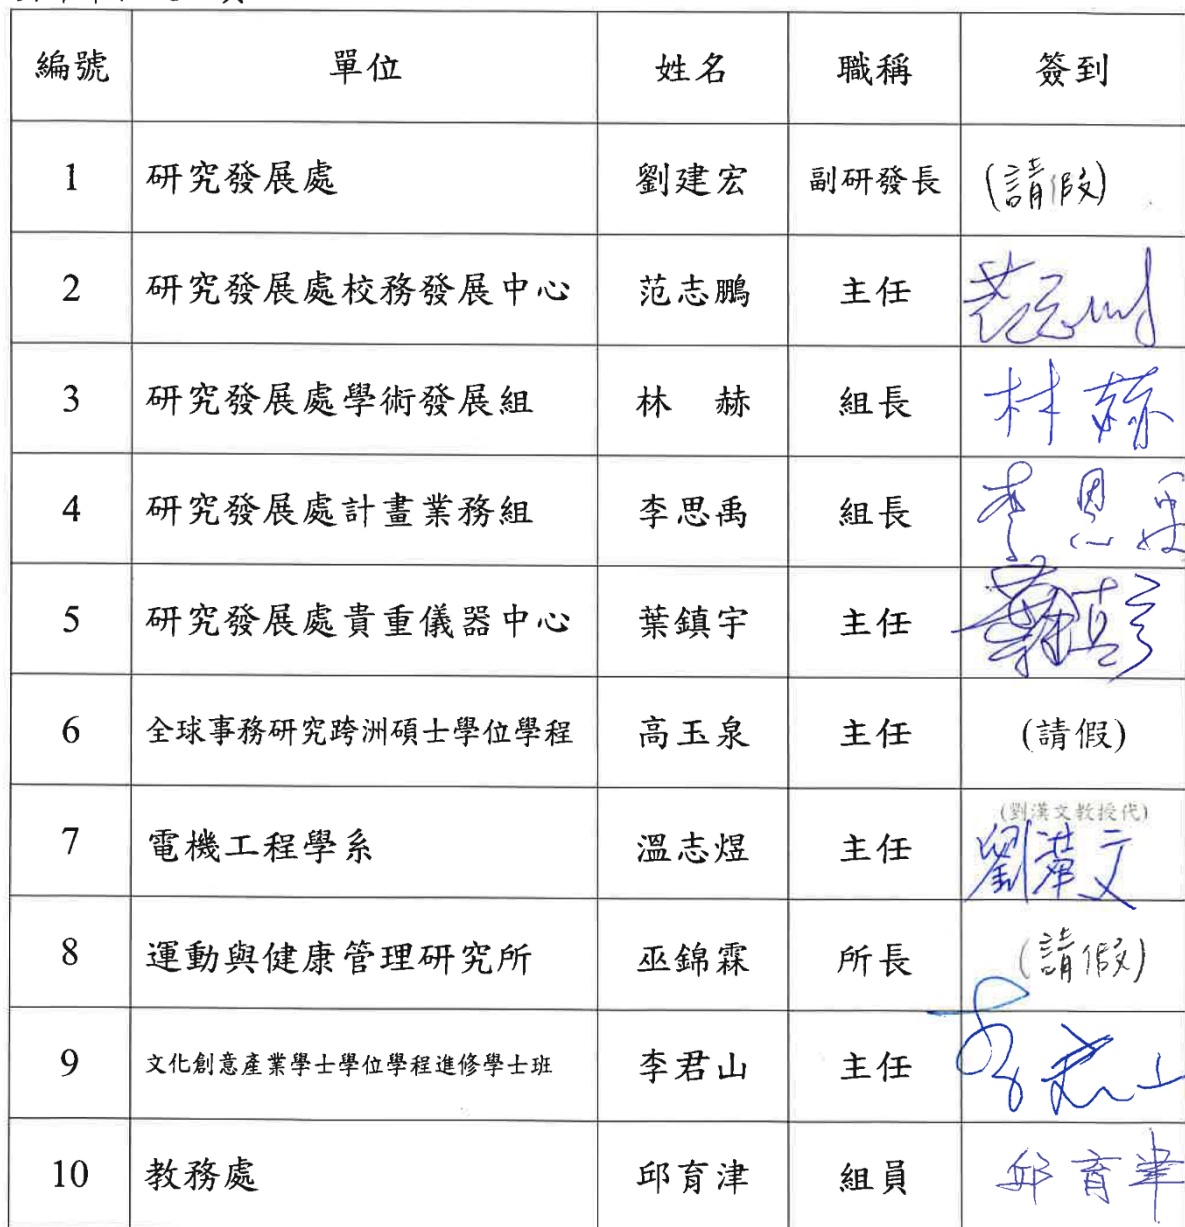 編號 單位 姓名 職稱 簽到
1 研究發展處 劉建宏 副研發長 (請假)
2 研究發展處校務發展中心 范志鵬 主任 范志鵬
3 研究發展處學術發展組 林 赫 組長 林赫
4 研究發展處計畫業務組 李思禹 組長 李思禹
5 研究發展處貴重儀器中心 葉鎮宇 主任
6 全球事務研究跨洲碩士學位學程 高玉泉 主任 (請假)
(劉漢文教授代)
7 電機工程學系 溫志煜 主任 劉漢文
8 運動與健康管理研究所 巫錦霖 所長 (請假)
9 文化創意產業學士學位學程進修學士班 李君山 主任 李君山
10 教務處 邱育津 組員 邱育津